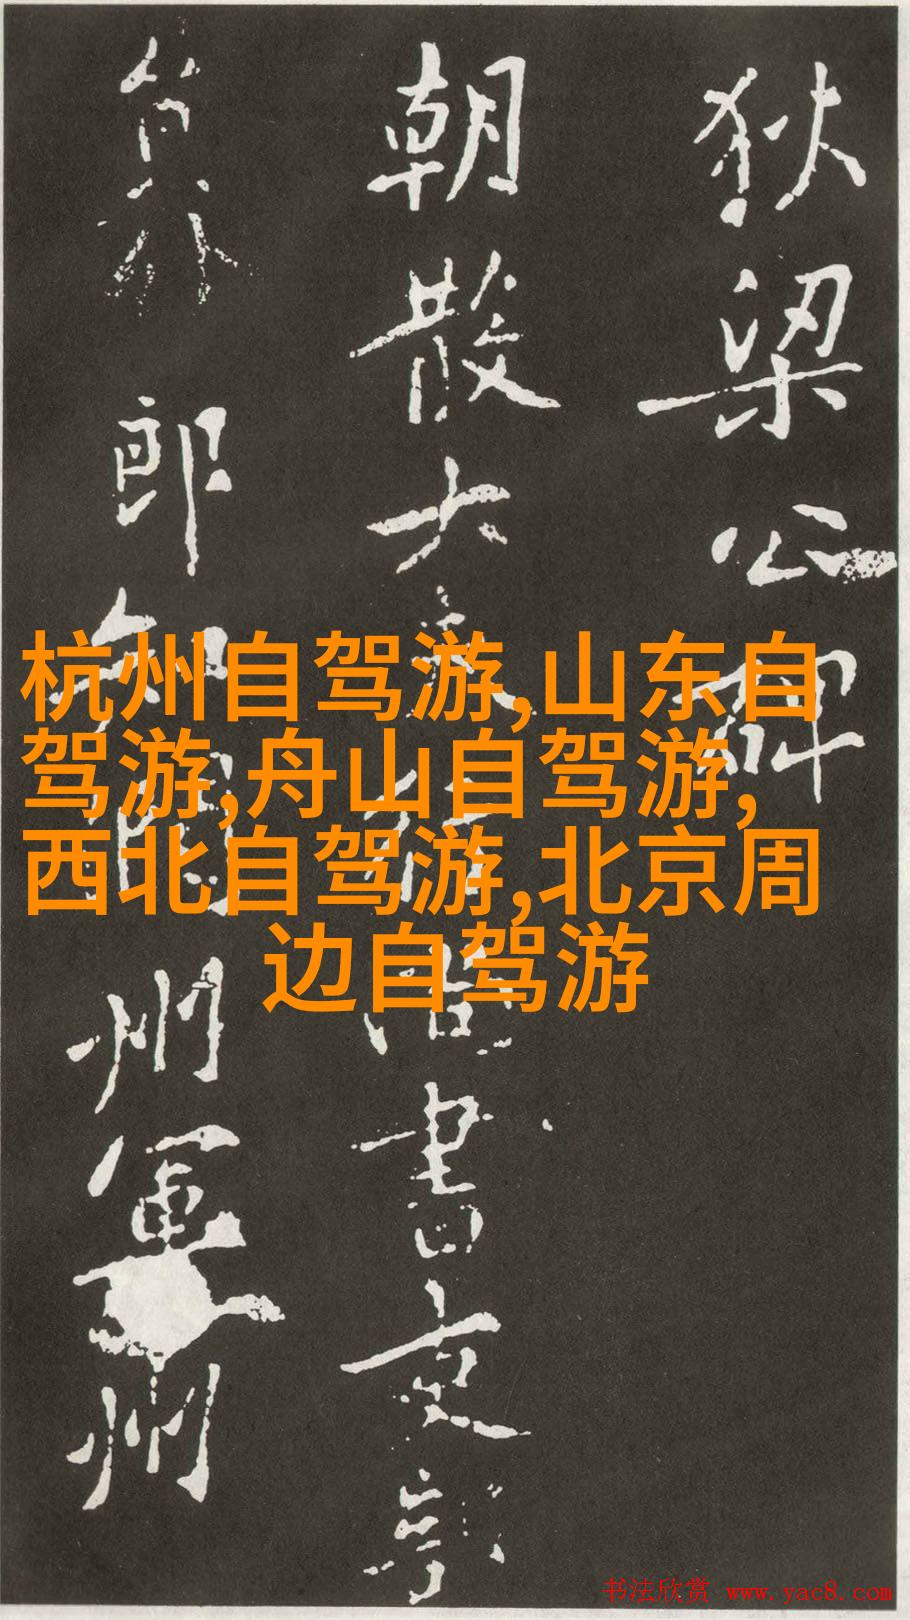 狄梁公碑
朝散大夫行尚書吏部
員外郎知潤州軍州
杭州自驾游,山东自
驾游,舟山自驾游,
西北自驾游,北京周
边自驾游
书法欣赏 www.yac8.com